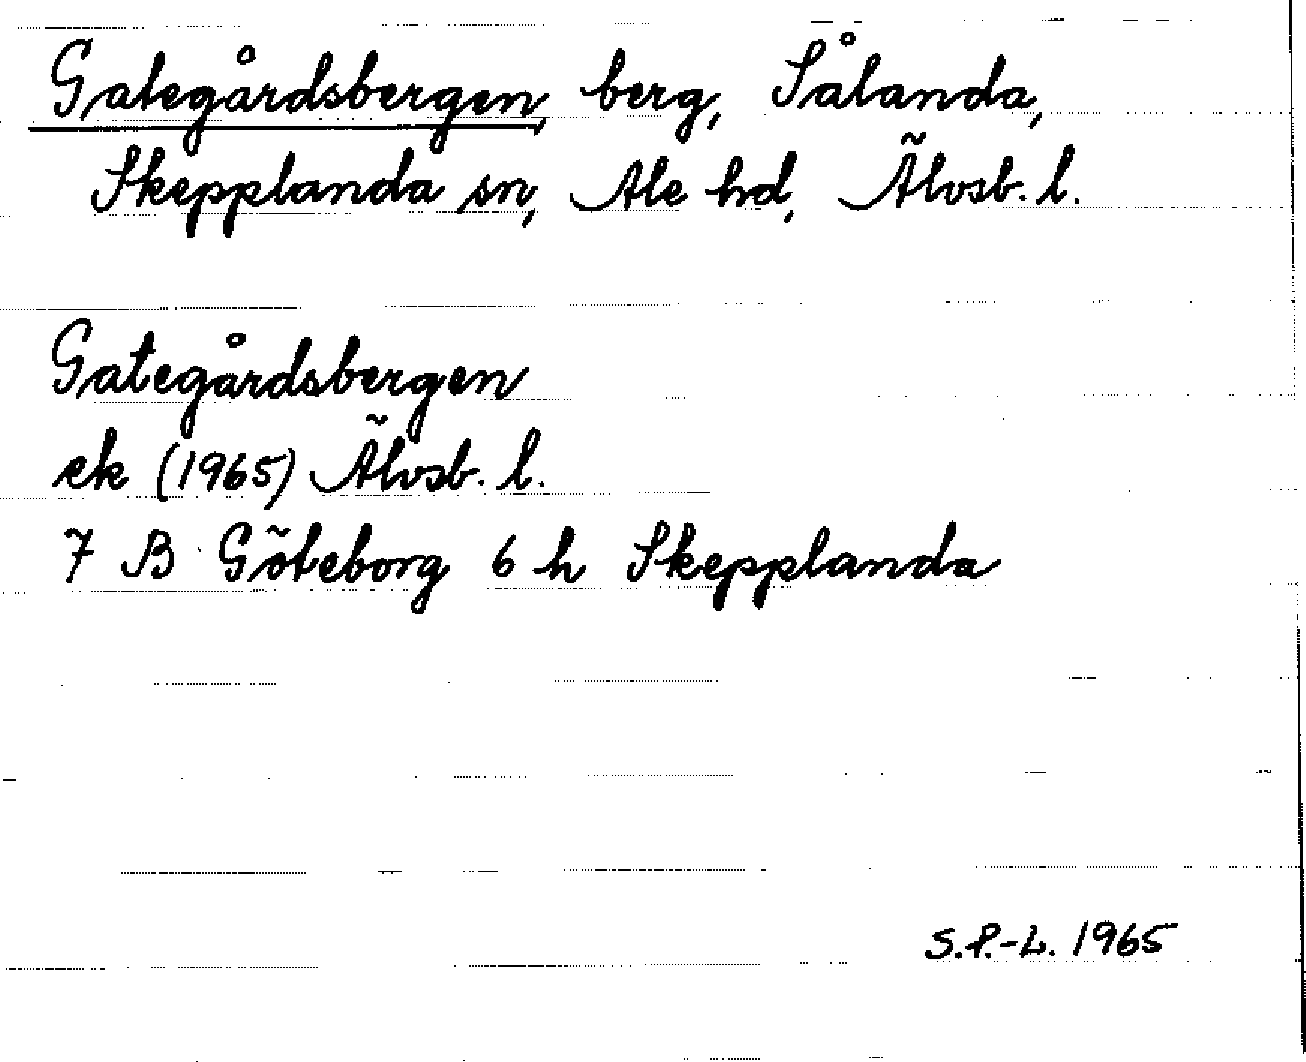 Gategårdsbergen, berg, Sålanda,
Skepplanda sn, Ale hd, Älvsb. l.
Gategårdsbergen
ek (1965) Älvsb. l.
7 B Göteborg 6 h Skepplanda
S.P.-L. 1965